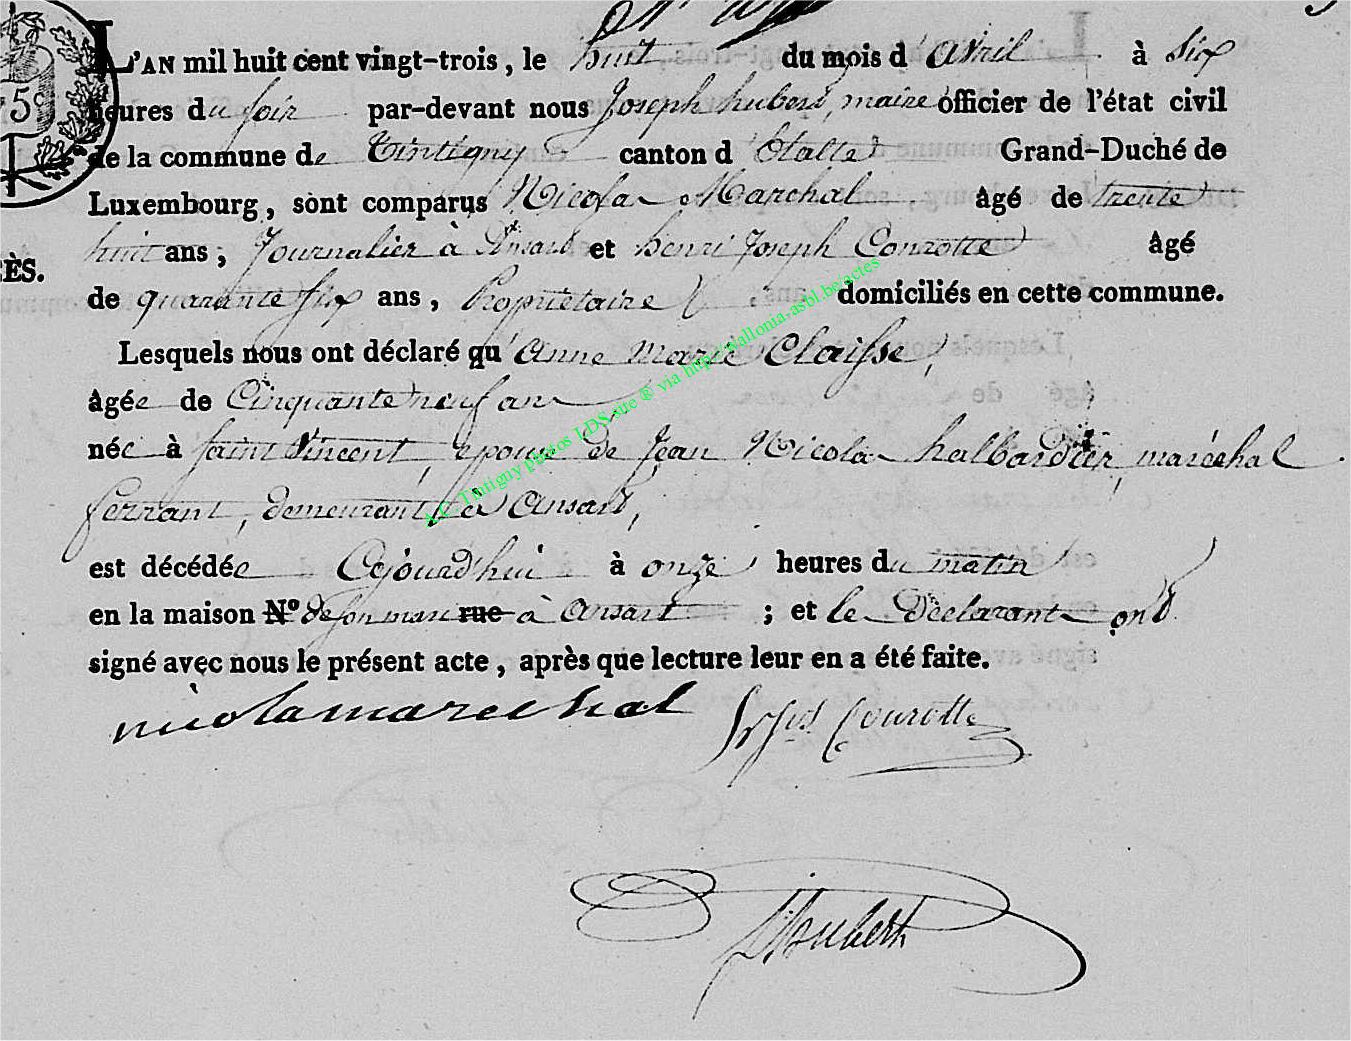 L'AN mil huit cent vingt-trois, le huit du mois d'avril à Six
heures du soir par-devant nous Joseph hubert, maire officier de l'état civil
de la commune de Tintigny canton d'Etalle Grand-Duché de
Luxembourg, sont comparus Nicolas Marchal âgé de trente
huit ans, Journalier à Ansart et henri Joseph Conrotte âgé
ÈS.
de quarante six ans, Propriétaire, domiciliés en cette commune.
Lesquels nous ont déclaré qu'Anne Marie Claisse,
âgée de Cinquante neuf ans
née à saint Vincent, epouse de Jean Nicolas halbardier, maréchal
ferrant, demeurant à Ansart,
est décédée Cejourd'hui à onze heures du matin
en la maison N° de son mari rue à Ansart ; et les Déclarants ont
signé avec nous le présent acte, après que lecture leur en a été faite.
nicola marechal
Conrotte
Hubert
75c
A.C. Tintigny photos LDS site ® via http://wallonia.asbl.be/actes